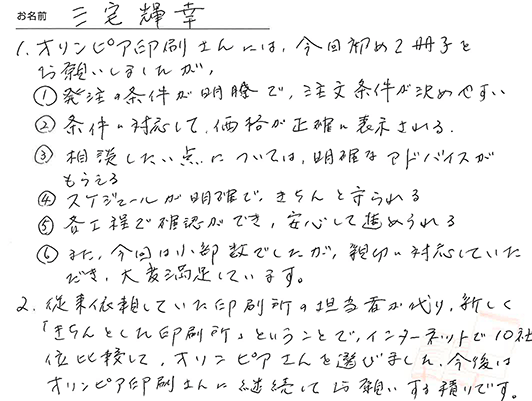 お名前 三宅輝幸
1. オリンピア印刷さんには、今回初めて冊子を
お願いしましたが、
① 発注の条件が明瞭で、注文条件が決めやすい
② 条件に対応して、価格が正確に表示される.
③ 相談したい点については、明確なアドバイスが
もらえる
④ スケジュールが明確で、きちんと守られる
⑤ 各工程で確認ができ、安心して進められる
⑥ また、今回は小部数でしたが、親切に対応していた
だき、大変満足しています。
2. 従来依頼していた印刷所の担当者が代り、新しく
「きちんとした印刷所」ということで、インターネットで10社
位比較して、オリンピアさんを選びました、今後は
オリンピア印刷さんに継続してお願いする積りです。